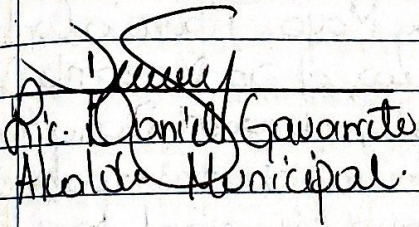 Lic. Daniel Gavarrete
Alcalde Municipal.